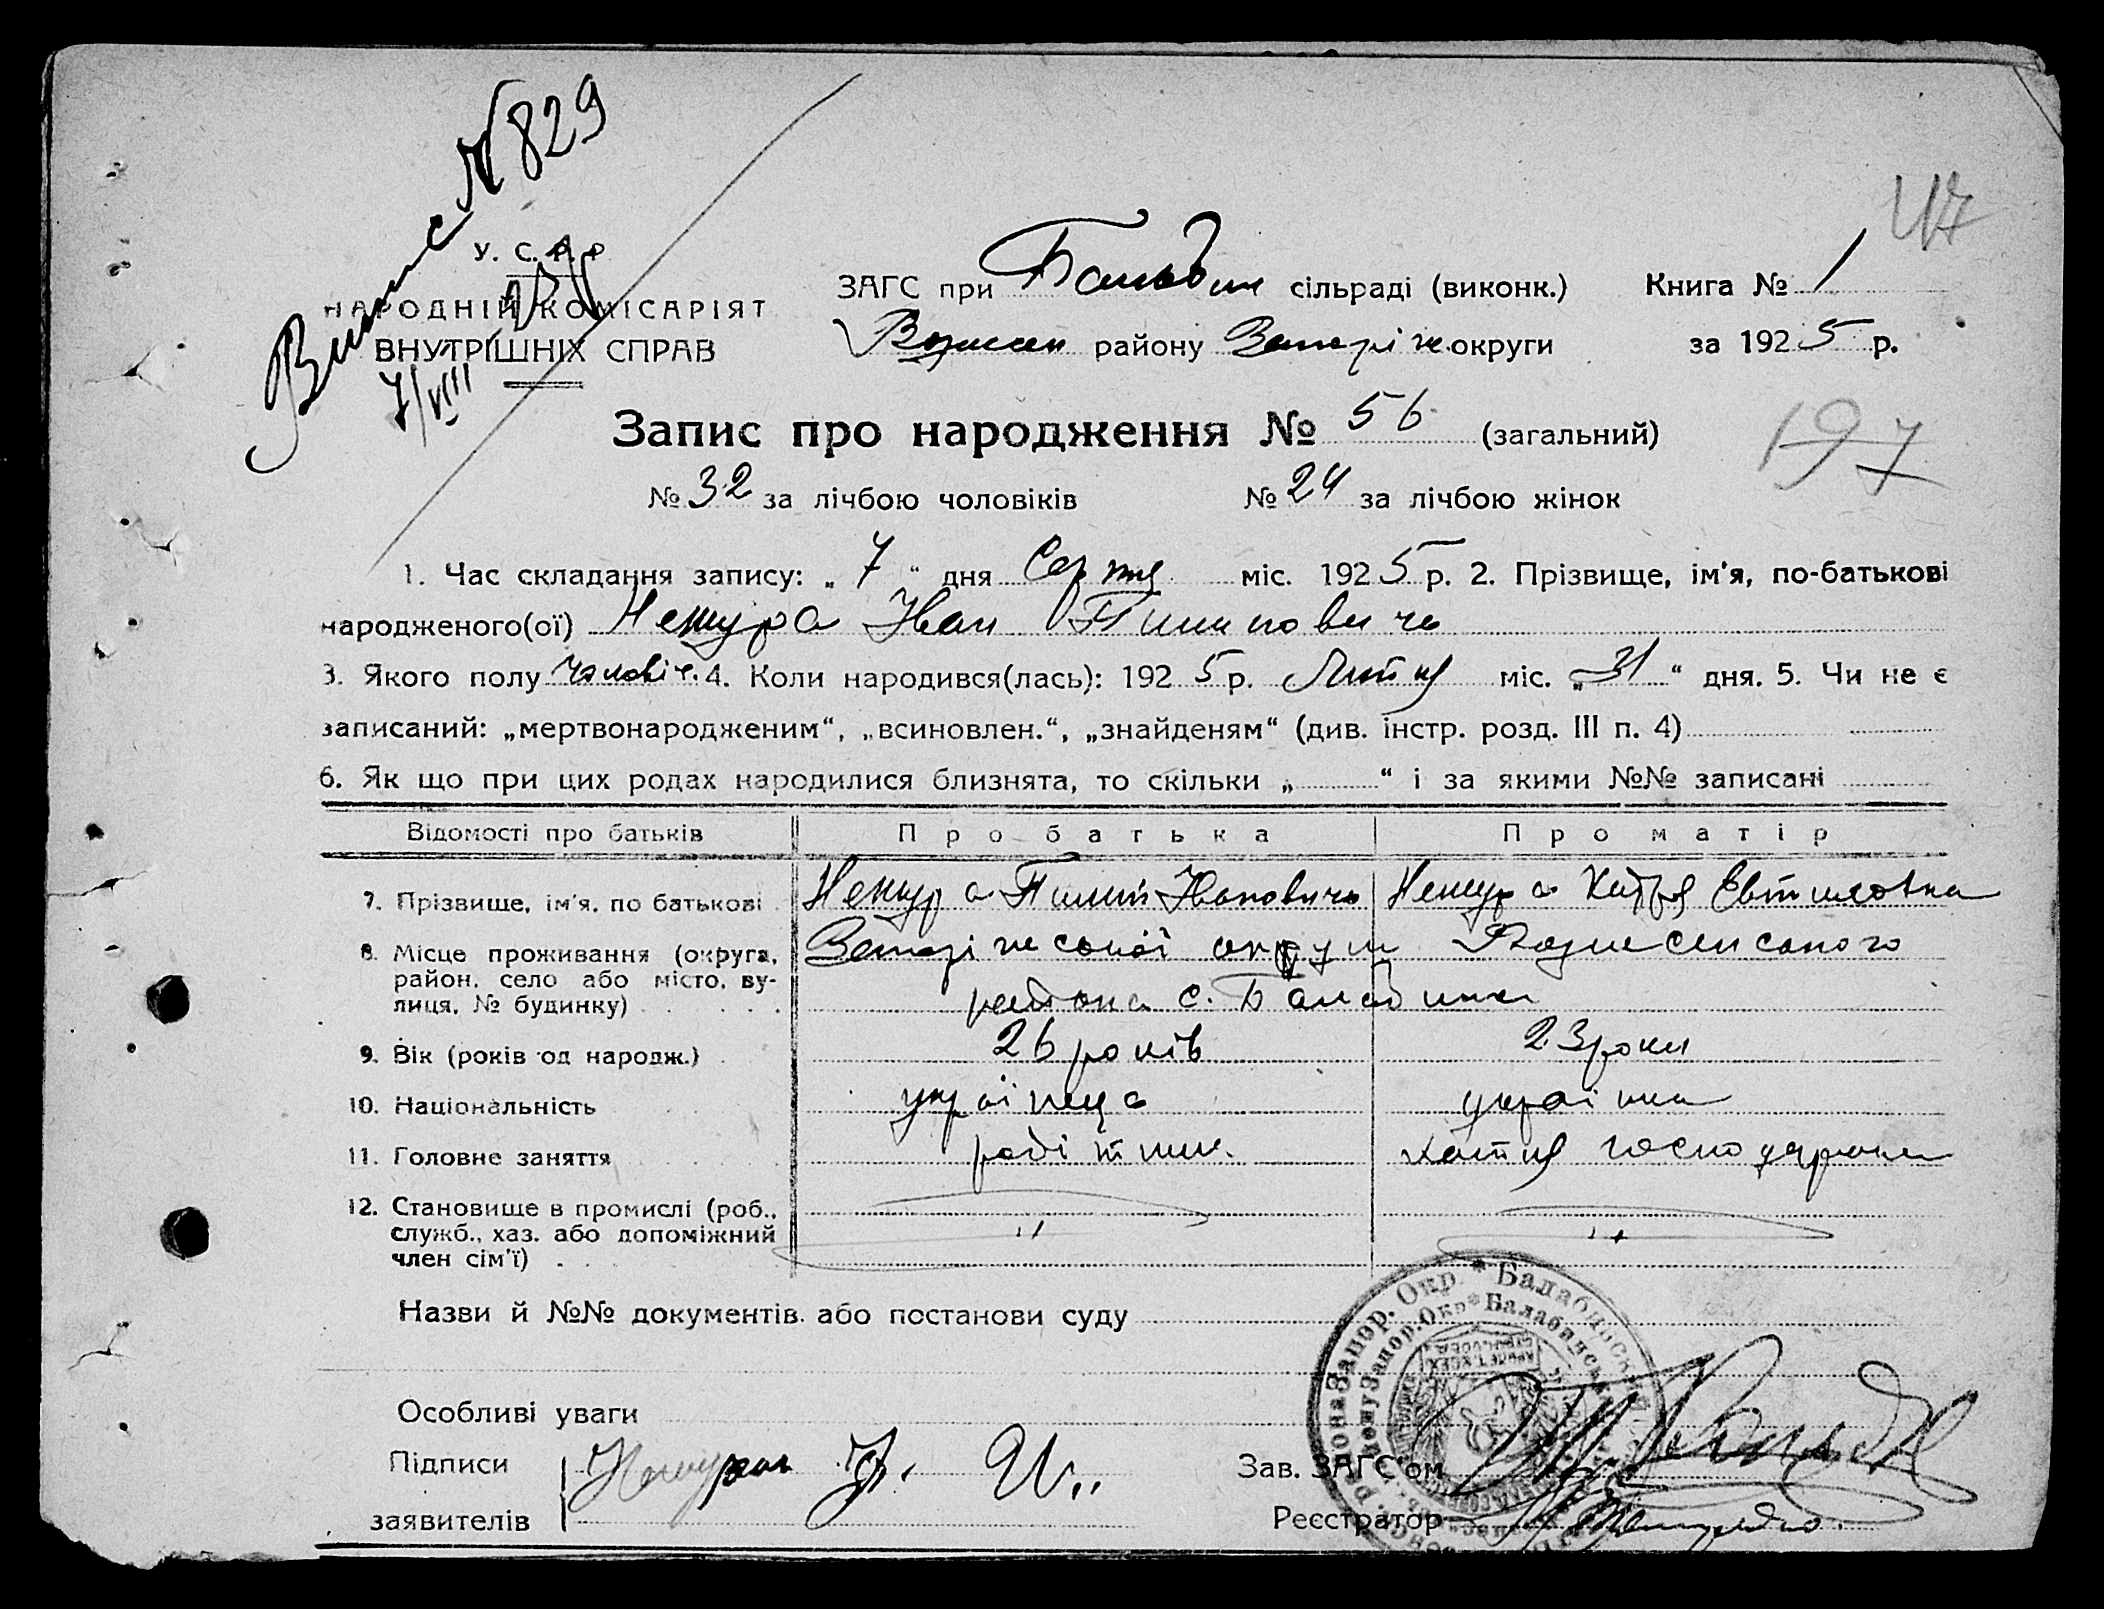 Витяс N 829
7/VIII
47
У. С. Р. Р
НАРОДНІЙ КОМІСАРІЯТ
ВНУТРІШНІХ СПРАВ
ЗАГС при Балабин сільраді (виконк.) Книга № 1
Вознесен району Запоріж округи за 1925 р.
Запис про народження № 56 (загальний)
197
№ 32 за лічбою чоловіків № 24 за лічбою жінок
1. Час складання запису: „ 7 “ дня Серпня міс. 1925 р. 2. Прізвище, ім'я, по-батькові
народженого(ої) Нежура Іван Пилипович
3. Якого полу чоловіч. 4. Коли народився(лась): 1925 р. Липня міс. „ 31 “ дня. 5. Чи не є
записаний: „мертвонародженим“, „всиновлен.“, „знайденям“ (див. інстр. розд. III п. 4)
6. Як що при цих родах народилися близнята, то скільки „ “ і за якими №№ записані
Відомості про батьків Про батька Про матір
7. Прізвище, ім'я, по батькові Нежура Пилип Іванович Нежура Хитря
8. Місце проживання (округа, район, село або місто, вулиця, № будинку) Запоріжської округи Вознесенського
района с. Балабинка
9. Вік (років од народж.) 26 років 23 роки
10. Національність українець українка
11. Головне заняття робітник. хатня господарка
12. Становище в промислі (роб., служб., хаз. або допоміжний член сім'ї) " "
Назви й №№ документів або постанови суду
Особливі уваги
Підписи
заявителів
Зав. ЗАГС'ом
Реєстратор